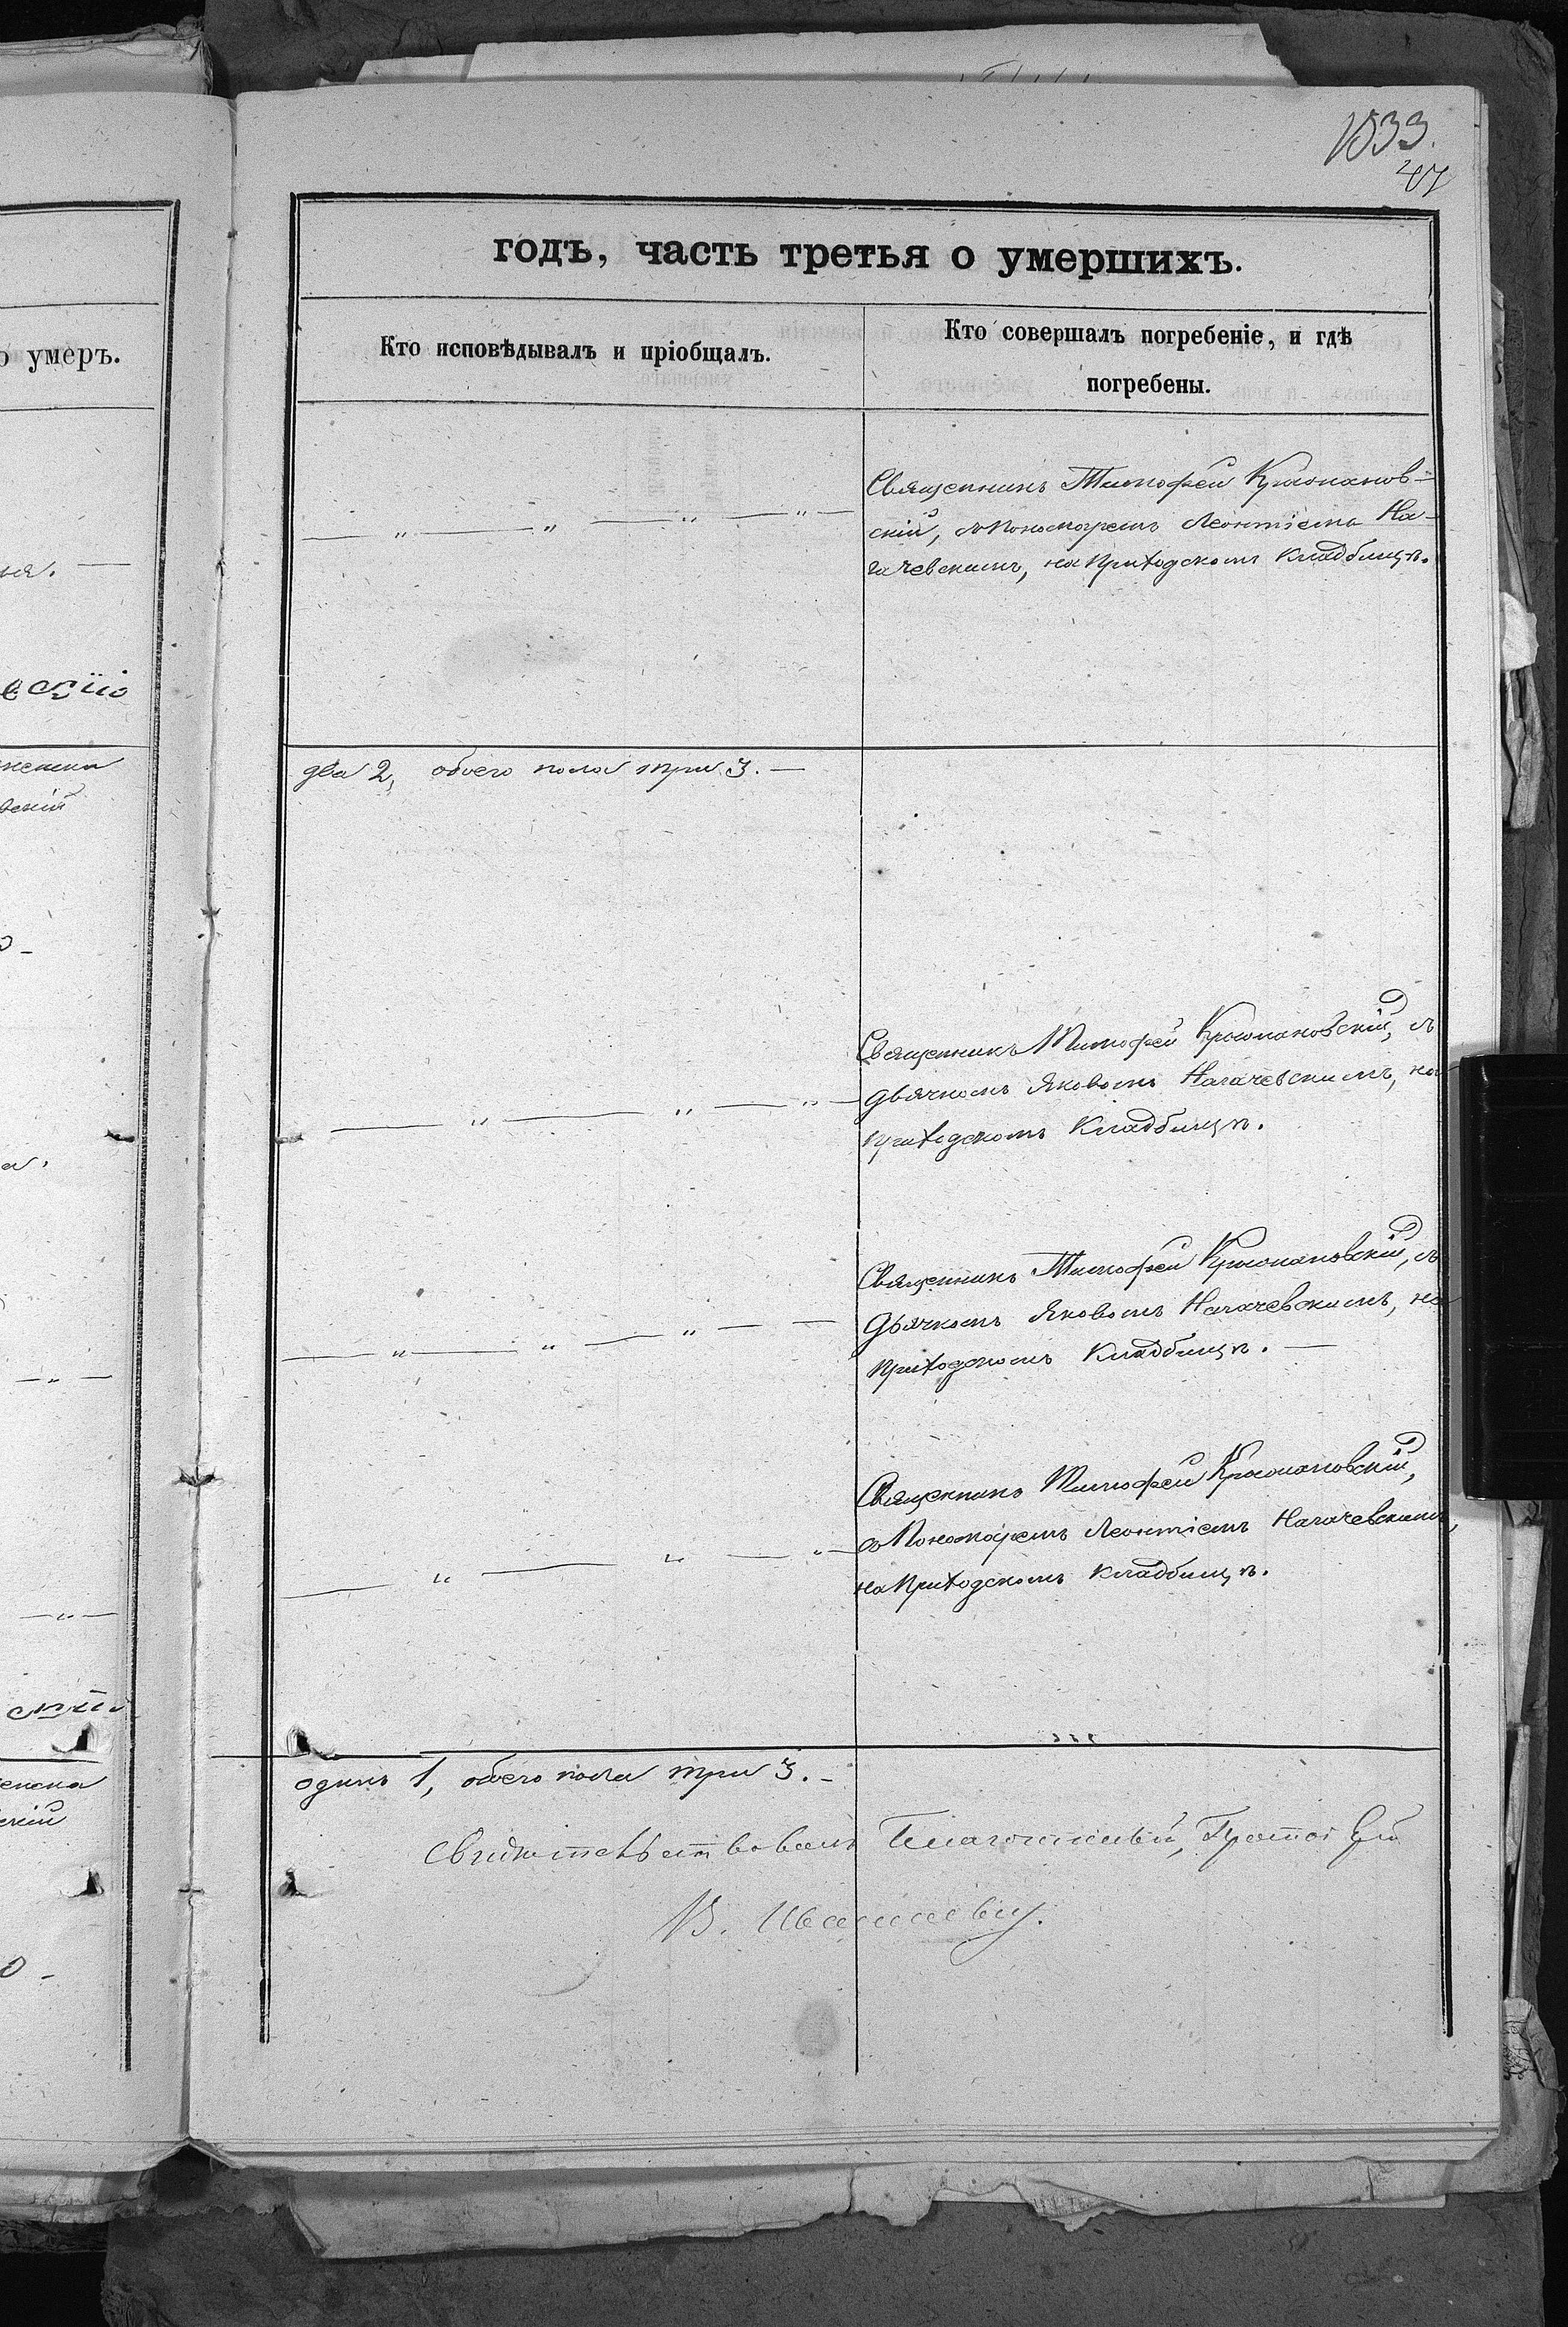 1033.
47
годъ, часть третья о умершихъ.
о умеръ.
Кто исповѣдывалъ и пріобщалъ.
Кто совершалъ погребеніе, и гдѣ
погребены.
Священникъ Тимофей
скій, съ Пономаремъ Леонтіемъ На-
гачевскимъ, на Приходскомъ Кладбищѣ.
два 2, обоего пола три 3. —
Священникъ Тимофей съ
дьячкомъ Яковомъ Нагачевскимъ, на
приходскомъ Кладбищѣ.
Священникъ Тимофей съ
дьячкомъ Яковомъ Нагачевскимъ, на
приходскомъ Кладбищѣ. —
Священникъ Тимофей
съ Пономаремъ Леонтіемъ Нагачевскимъ,
на Приходскомъ кладбищѣ.
одинъ 1, обоего пола три 3. –
Свидѣтельствовалъ Благочинный, Протоіерей
В.